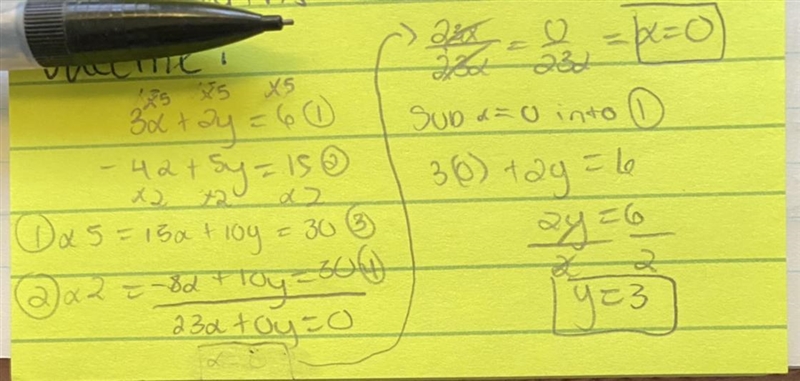 x5 x5 x5
3x + 2y = 6 ①
-4x + 5y = 15 ②
x2 x2 x2
① x 5 = 15x + 10y = 30 ③
② x 2 = -8x + 10y = 30 ④
23x + 0y = 0
23x/23x = 0/23x = x = 0
Sub x = 0 into ①
3(0) + 2y = 6
2y/2 = 6/2
y = 3